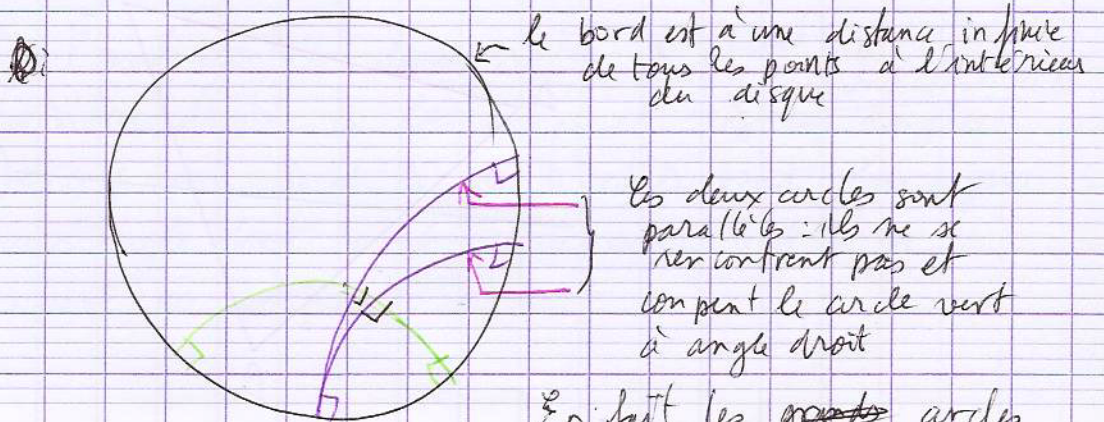 le bord est à une distance infinie
de tous les points à l'intérieur
du disque
les deux cercles sont
parallèles : ils ne se
rencontrent pas et
coupent le cercle vert
à angle droit
En fait les cercles